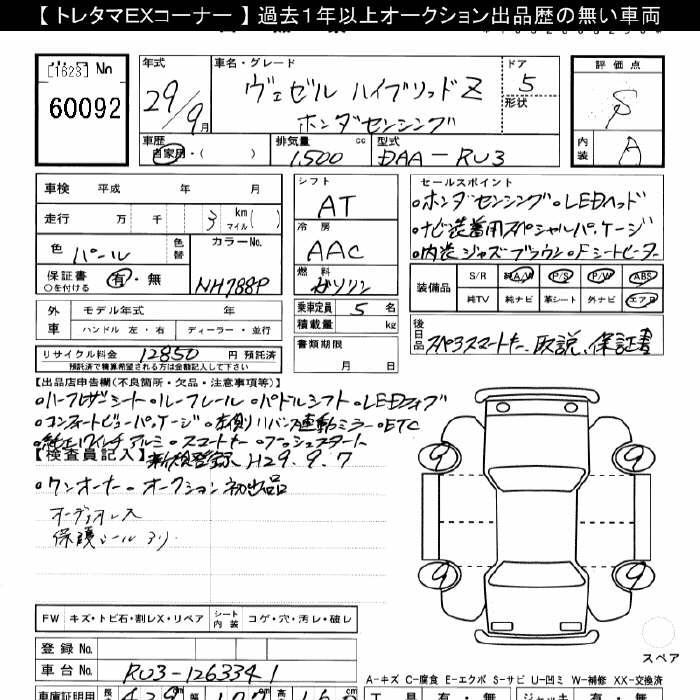 【 トレタマEXコーナー 】 過去１年以上オークション出品歴の無い車両
[1623] No 60092
年式 29/9月
車名・グレード ヴェゼル ハイブリッドZ ホンダセンシング
ドア 5 形状
評価点 S
内装 A
車歴 自家用・( )
排気量 1,500 cc
型式 DAA-RU3
車検 平成 年 月
走行 万 千 3 km マイル( )
色 パール 色替
カラーNo. NH788P
保証書 ○を付ける 有・無
シフト AT
冷房 AAC
燃料 ガソリン
乗車定員 5 名
積載量 kg
書類期限 月 日
外車 モデル年式 年
ハンドル 左・右 ディーラー・並行
リサイクル料金 12850 円 預託済
預託済で精算希望される方は金額記入して下さい
セールスポイント
。ホンダセンシング。LEDヘッド
。ナビ装着用スペシャルパッケージ
。内装ジャズブラウン。Fシートヒーター
装備品 S/R 純A/W P/S P/W ABS
純TV 純ナビ 革シート 外ナビ エアB
後日品 スペアスマートキー、取説、保証書
【出品店申告欄(不良箇所・欠品・注意事項等)】
。ハーフレザーシート。ルーフレール。パドルシフト。LEDフォグ
。コンフォートビューパッケージ。左側リバース連動ミラー。ETC
。純正17インチアルミ。スマートキー。プッシュスタート
【検査員記入】 新検登録、H29.9.7
。ワンオーナー。オークション初出品
オーディオレス
保護シールあり
9 9
9 9
スペア
FW キズ・トビ石・割レX・リペア シート内装 コゲ・穴・汚レ・破レ
登録 No.
車台 No. RU3-1263341
A-キズ C-腐食 E-エクボ S-サビ U-凹ミ W-補修 XX-交換済
車庫証明用
工具 有・無 ジャッキ 有・無